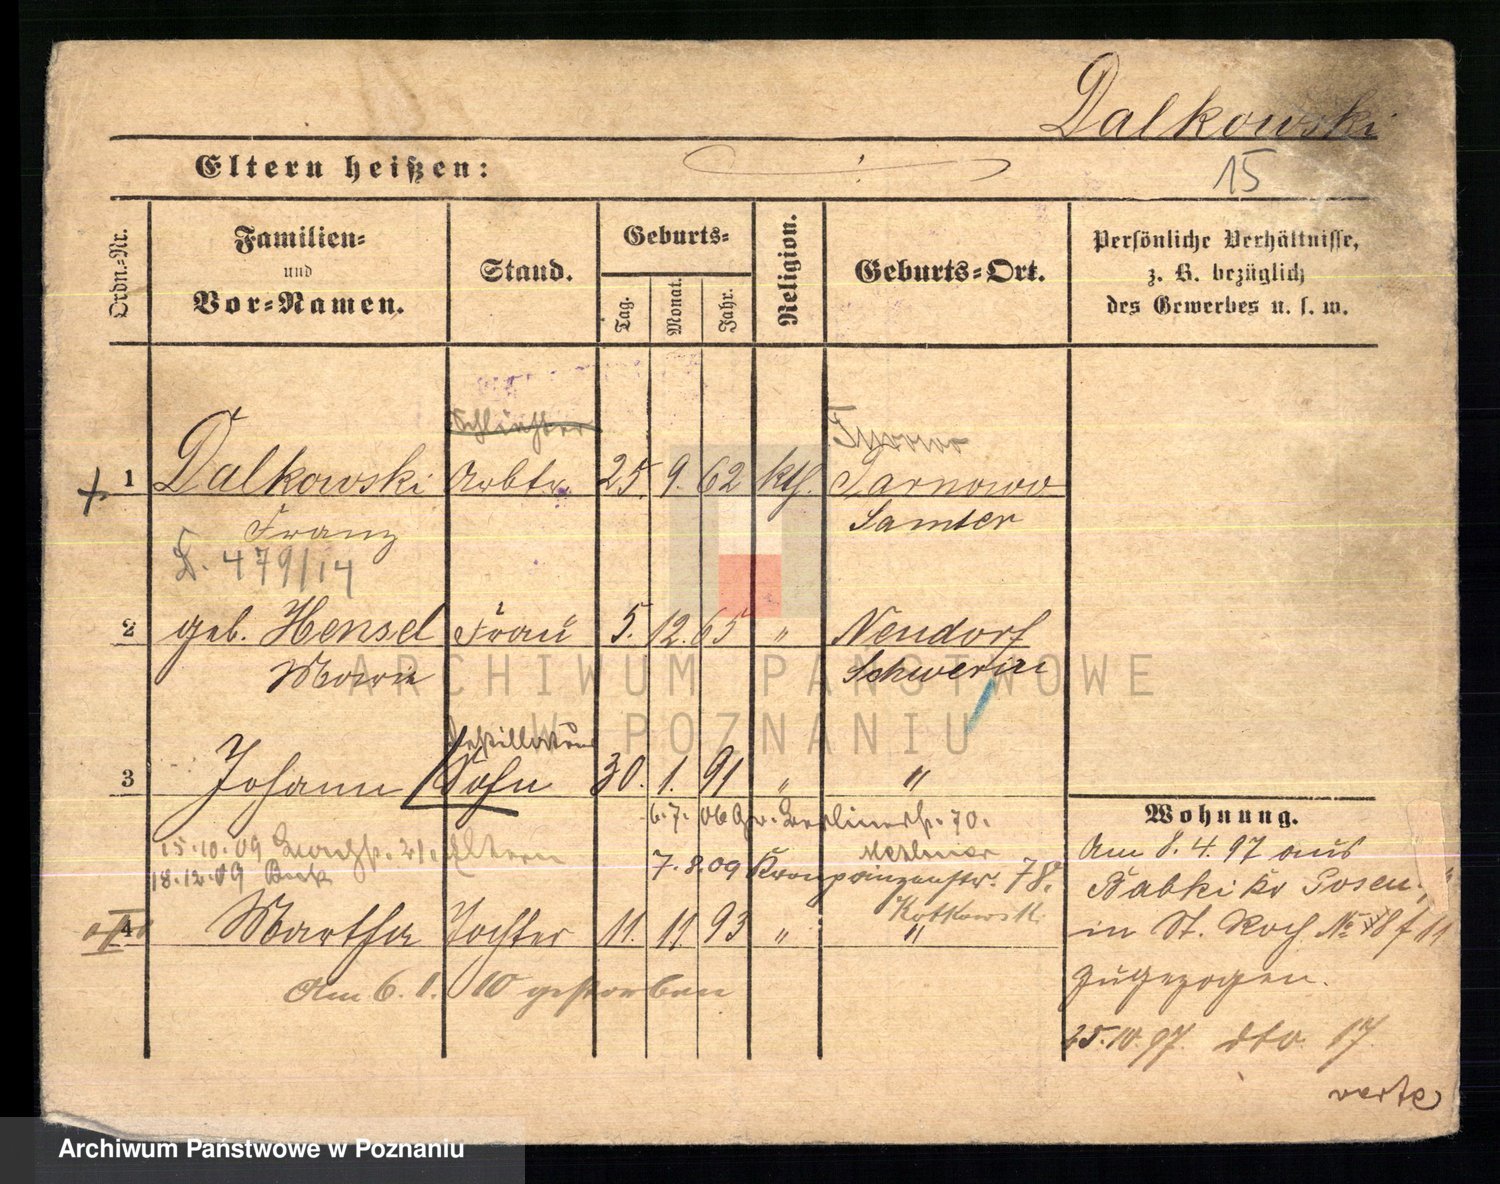 Dalkowski
Eltern heißen:
15
Ordn.-Nr.
Familien- und Vor-Namen.
Stand.
Geburts-
Tag.
Monat.
Jahr.
Religion.
Geburts-Ort.
Persönliche Verhältnisse,
z. B. bezüglich
des Gewerbes u. s. w.
1 Dalkowski Arbtr. 25. 9. 62 kth. Tarnowo
Franz Samter
479/14
2 geb. Hensel Frau 5. 12. 65 " Neudorf
Maria Schwerin
3 Johann Sohn 30. 1. 91 " "
6.7.06 Gr. Berlinerstr. 70.
15.10.09 Eltern
7.8.09 Kronprinzenstr. 78.
18.12.09
4 Martha Tochter 11. 11 93 " "
Am 6. 1. 10 gestorben
Wohnung.
Am 8. 4. 97 aus
Babki Kr Posen
in St. Roch No
zugezogen.
25.10.97. dto. 17.
verte
ARCHIWUM PAŃSTWOWE
W POZNANIU
Archiwum Państwowe w Poznaniu